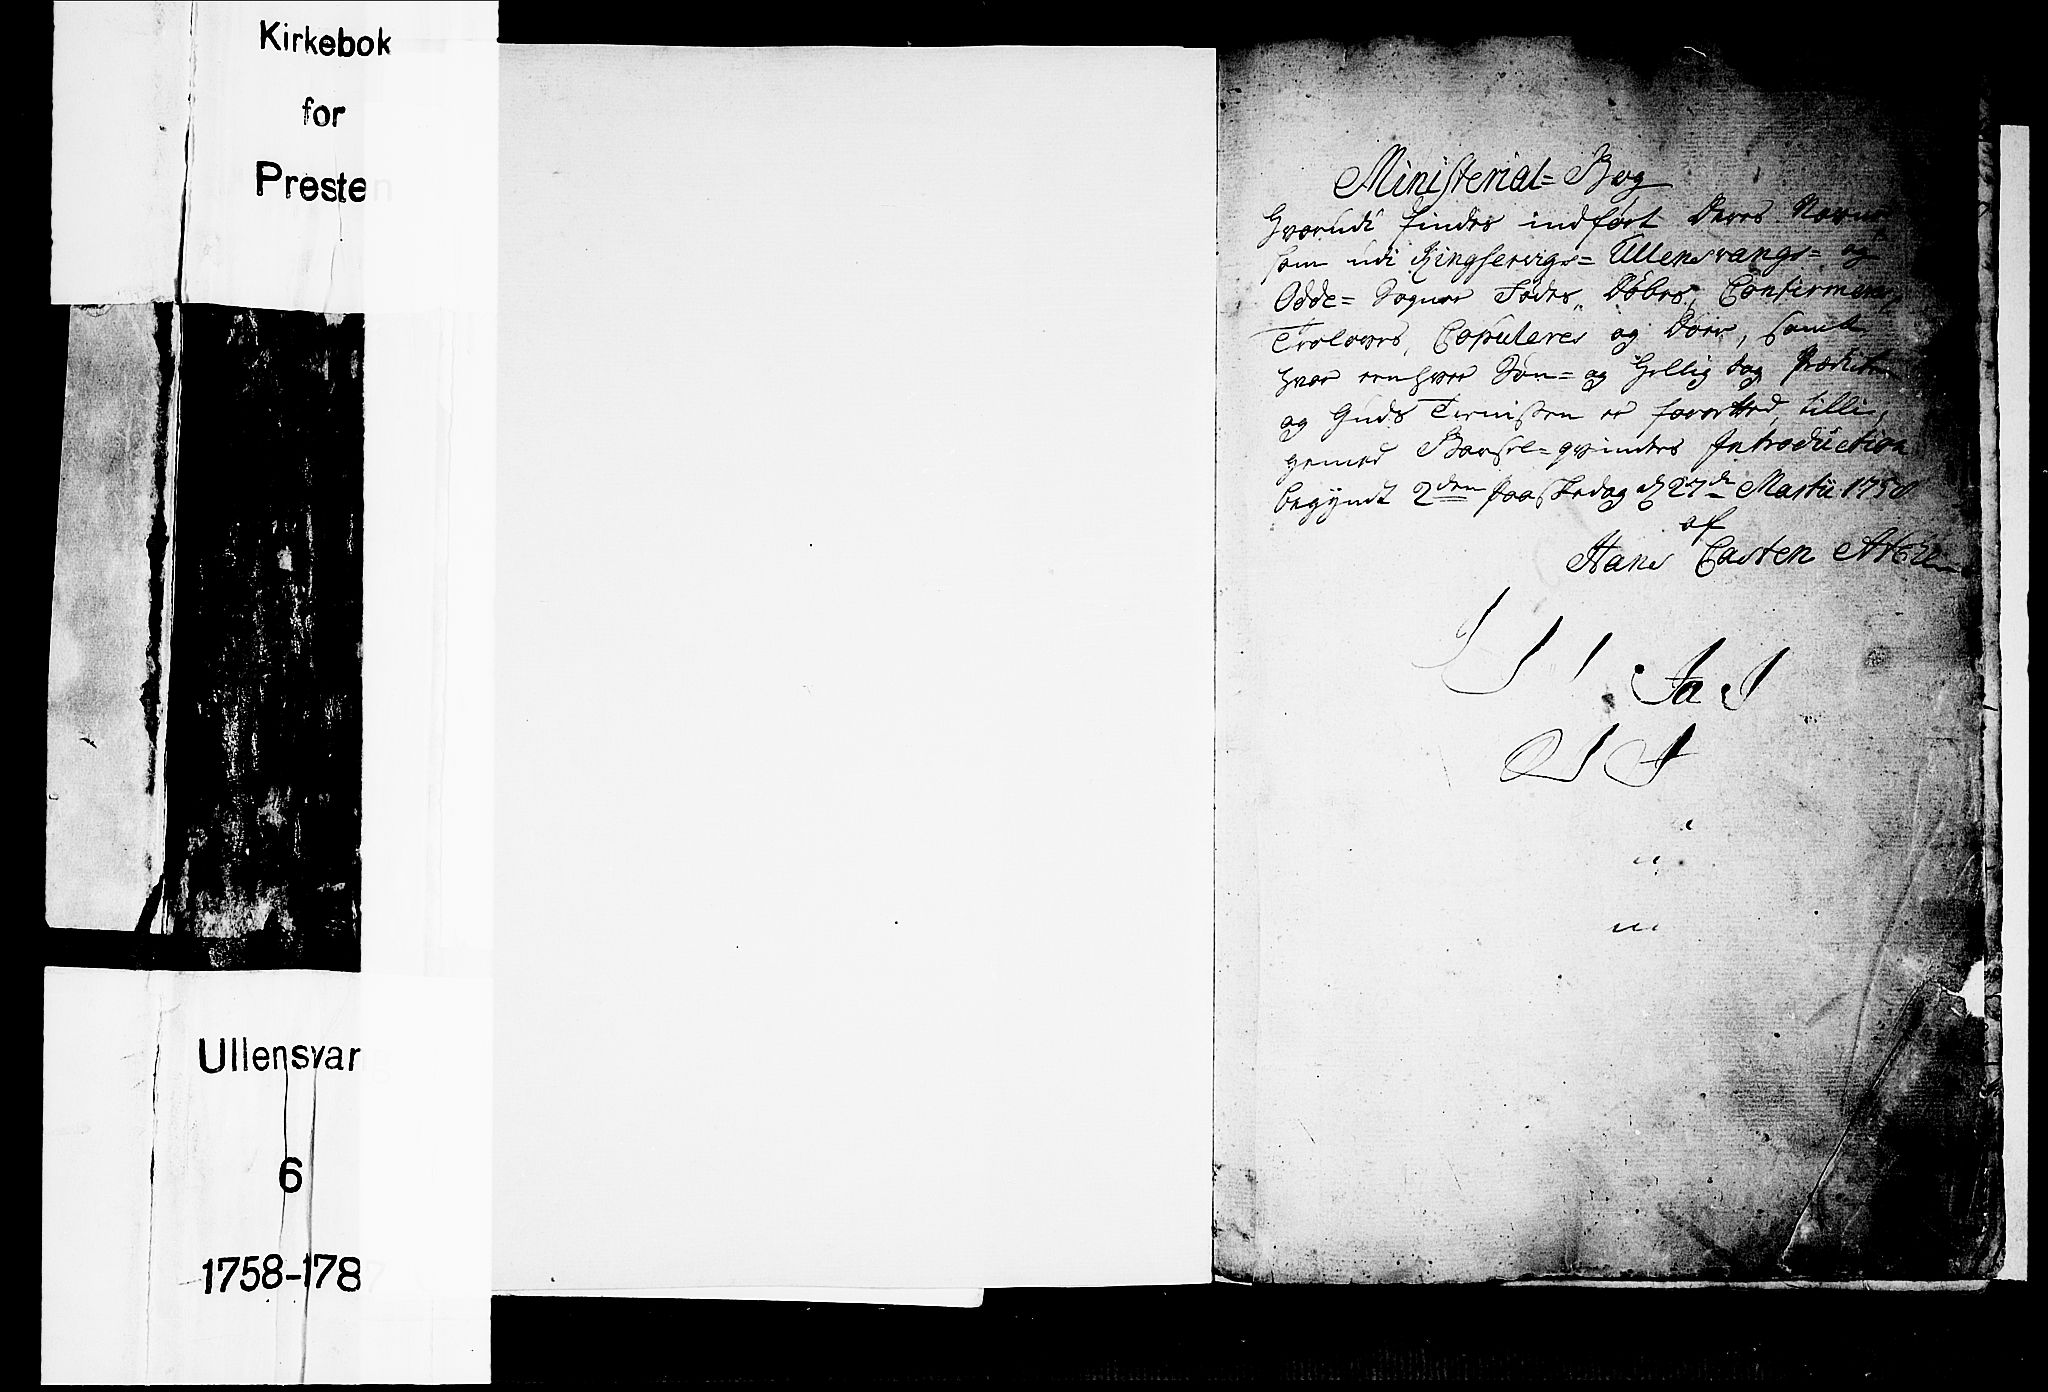 Kirkebok
for
Presten
Ullensvang
6
1758-1787
Ministerial= Bog
Hvorudi findes indført deres Navne
som udi Kingservigs= Ullensvangs= og
Odde= Sogner Fødes, Døbes, Confirmeres
Troloves, Copuleres og Døer, samt
hvor eenhver Søn= og Hellig dag Prædiken
og Guds Tienisten er forretted, tilli,
gemed Barsel= qvinders Introduction
begyndt 2den Paaskedag d 27de Martii 1758
af
Hans Carsten Atke
Ja